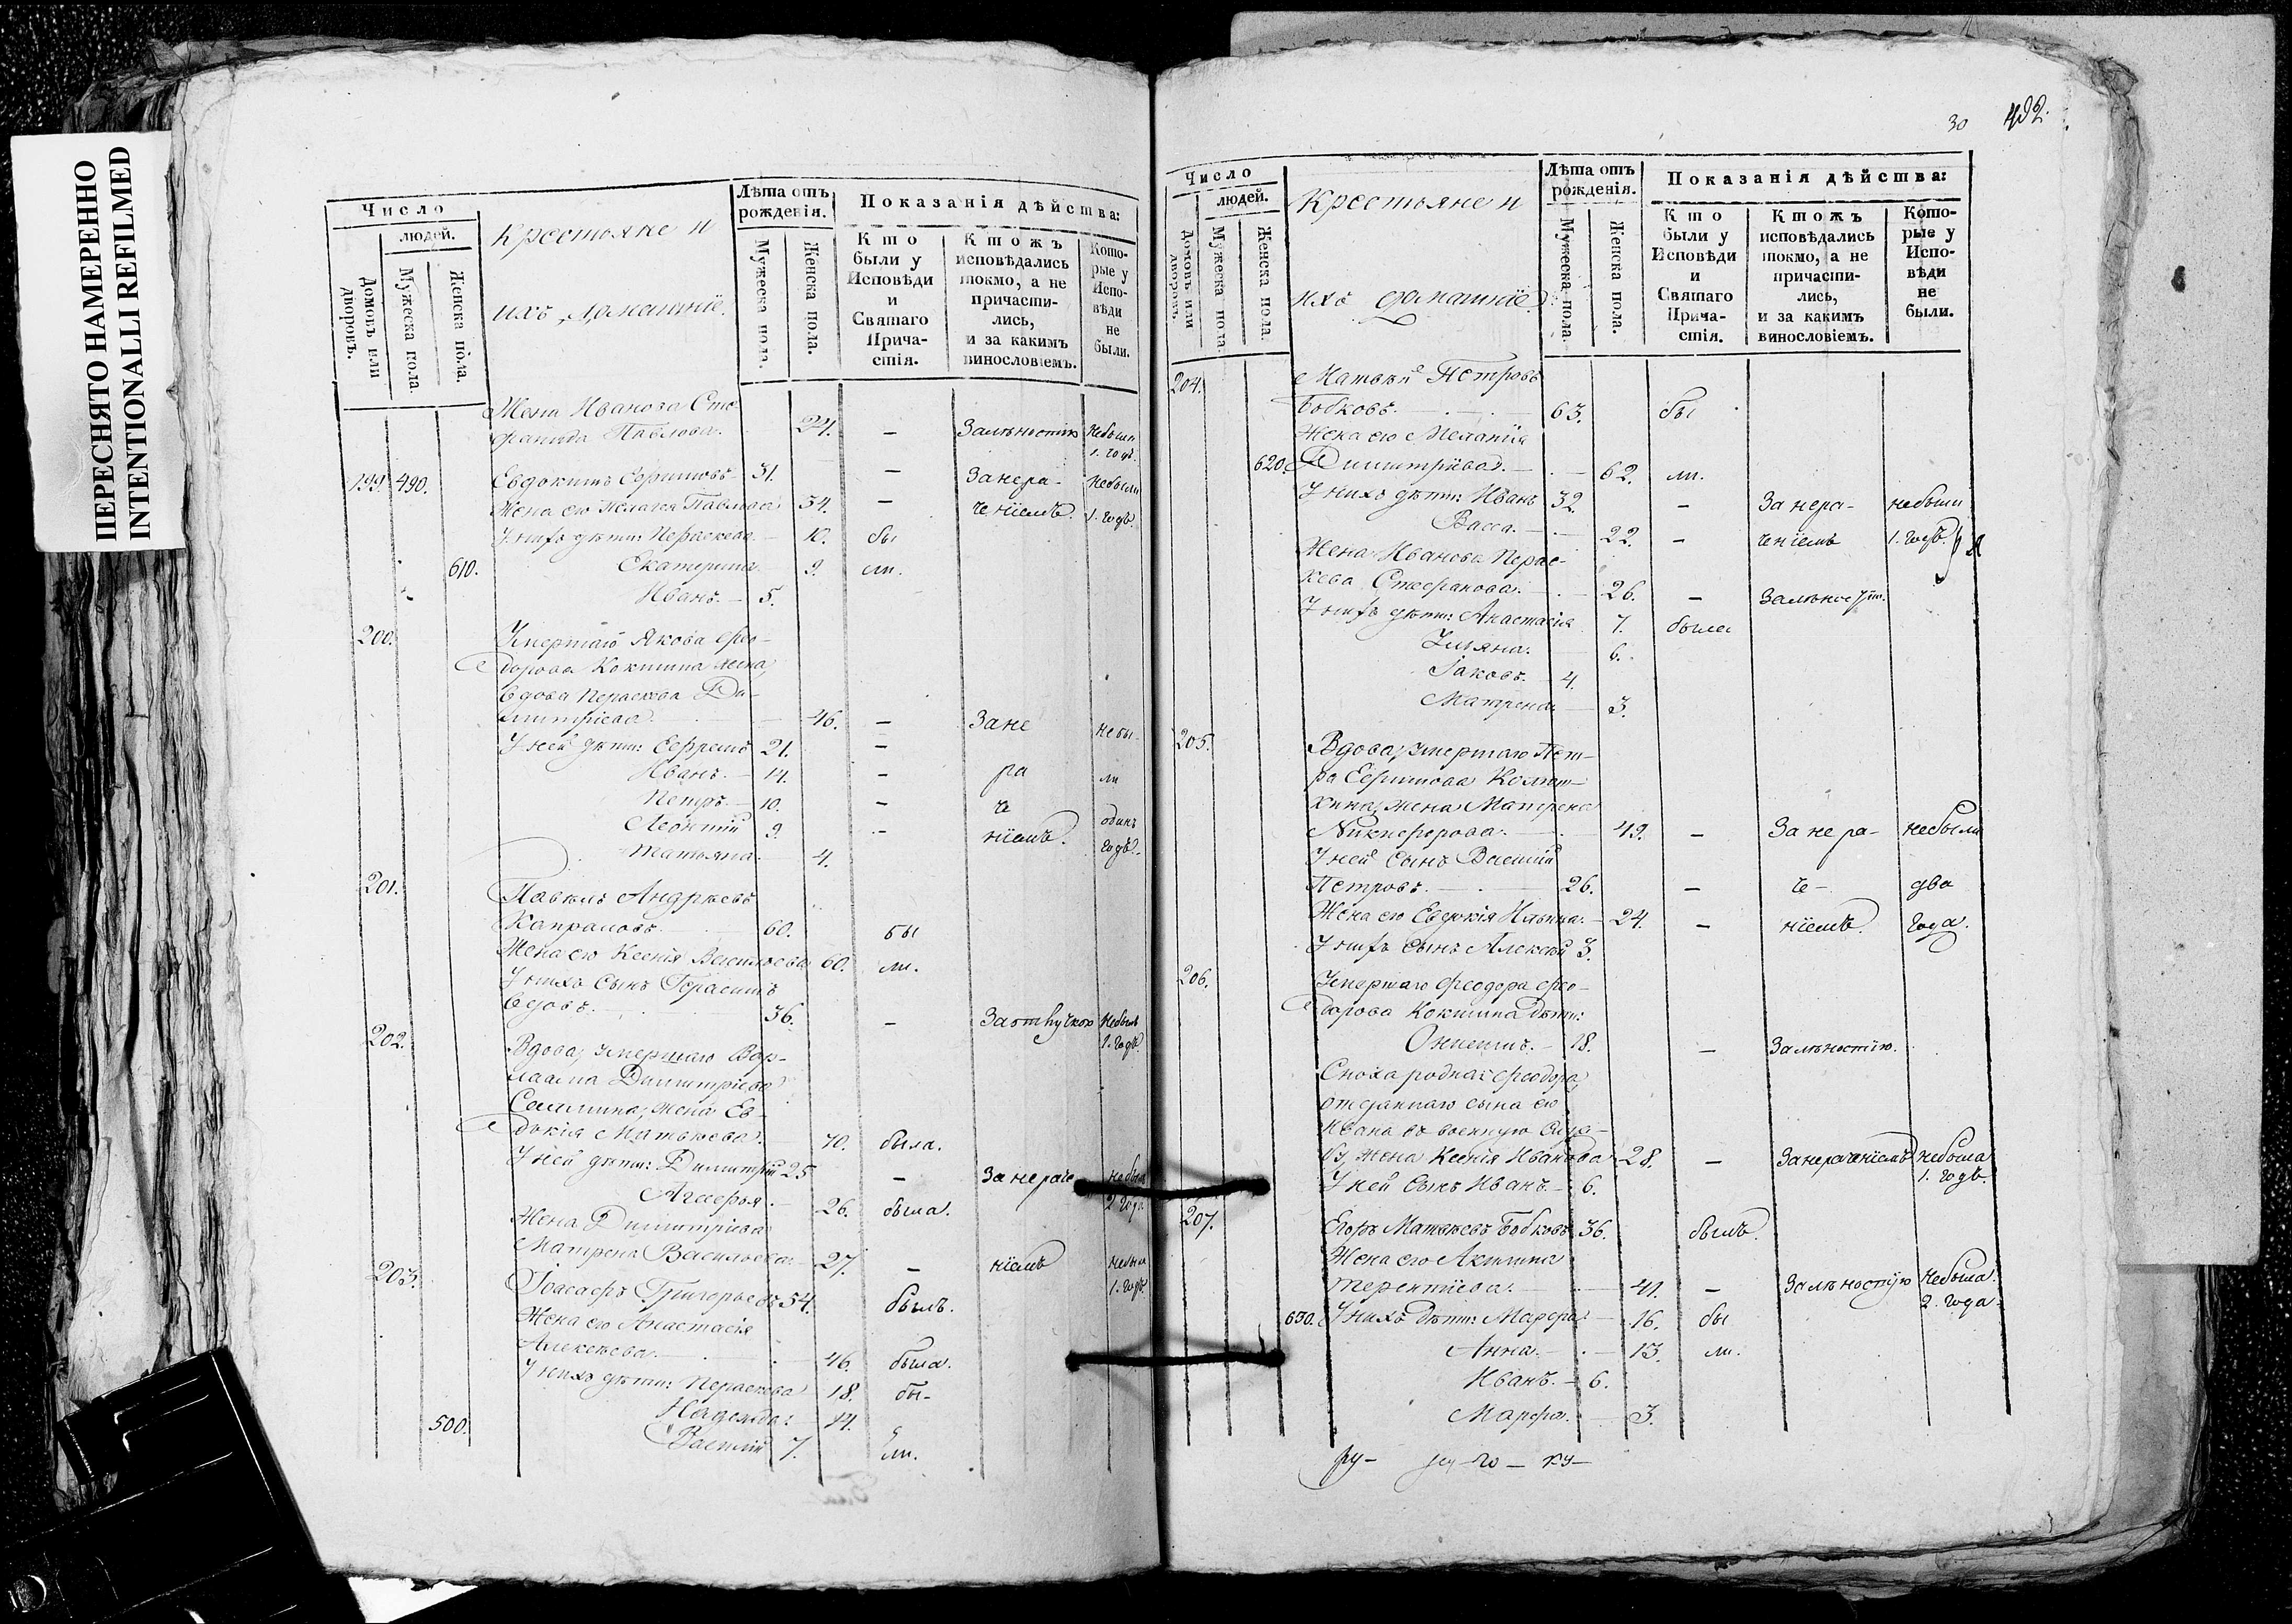 ПЕРЕСНЯТО НАМЕРЕННО
INTENTIONALLI REFILMED
Число
людей.
Домовъ или дворовъ.
Мужеска пола
Женска пола.
Крестьяне и
ихъ домашнїе.
Лѣта отъ рожденїя.
Мужеска пола.
Женска пола.
Показанїя дѣйства:
Кто были у Исповѣди и Святаго Прича-стїя.
Ктожъ исповѣдались токмо, а не причасти-лись, и за какимъ винословїемъ.
Кото-рые у Испо-вѣди не были.
Жена Иванова Сте-
фанида Павлова. 24. — Залѣностїю небыла
1. годъ.
199. 490. Евдокимъ Ефимовъ 31. — Занера- небыли
Жена его Пелагея Павлова 34. — ченїемъ. 1. годъ.
У нихъ дѣти: Параскева 10. бы
610. Екатерина 9. ли.
Иванъ. 5.
200. Умершаго Якова Фео-
дорова Кокшина жена,
вдова Пераскева Ди-
митрїева. 46. — Зане небы-
У ней дѣти: Ефремъ 21. —
Иванъ. 14. — ра ли
Петръ. 10. — че одинъ
Леонтїй 9. — нїемъ. годъ.
Татьяна. 4.
201. Павелъ Андреевъ
Капраловъ. 60. бы
Жена его Ксенїя 60. ли.
У нихъ сынъ Герасимъ
вдовъ. 36. — Заотлучкою небылъ
1. годъ.
202. Вдова, умершаго Вар-
лаама Димитрїева
жена Ев-
докїя Матвѣева. 70. была.
У ней дѣти: Димитрїй 25 — Занераче небылъ
2 года
Агафья. 26. была.
Жена Димитрїева
Матрена Васильева. 27. — нїемъ небыла
1. годъ.
203. Іоасафъ Григорьевъ 54. былъ.
Жена его Анастасїя
Алексѣева. 46. была.
У нихъ дѣти: Пераскева 18. бы-
Надежда: 14.
500. Василїй 7. ли.
30 492.
Число
людей.
Домовъ или дворовъ.
Мужеска пола.
Женска пола.
Крестьяне и
ихъ домашнїе.
Лѣта отъ рожденїя.
Мужеска пола.
Женска пола.
Показанїя дѣйства:
Кто были у Исповѣди и Святаго Прича-стїя.
Ктожъ исповѣдались токмо, а не причасти-лись, и за какимъ винословїемъ.
Кото-рые у Испо-вѣди не были.
204. Матвѣй Петровъ
Бобковъ. 63. бы
Жена его Меланїя
620. Димитрїева. 62. ли.
У нихъ дѣти: Иванъ 32. — За нера- небыли
Васса. 22. — ченїемъ 1. годъ.
Жена Иванова Перас-
кева Стефанова. 26. — Залѣностїю.
У нихъ дѣти: Анастасїя 7. была
Ульяна. 6.
Іаковъ. 4.
Матрена 3.
205. Вдова, умершаго Пет-
ра Ефимова
жена Матрена
Никифорова. 49. — За не ра- небыли
У ней сынъ Василїй
Петровъ. 26. — че- два
Жена его Евдокїя Ильина. 24. — нїемъ. года.
У нихъ сынъ Алексѣй 3.
206. Умершаго Феодора Фео-
дорова Кокшина дѣти:
Онисимъ. 18. — Залѣностїю.
Сноха родная Феодора,
отданнаго сына его
Ивана въ военную служ-
бу, жена Ксенїя Иванова 28. — Занераченїемъ небыла
1. годъ.
У ней сынъ Иванъ. 6.
207. Егоръ Матвѣевъ Бобковъ 36. былъ.
Жена его Акилина
Терентїева. 41. — Залѣностїю небыла.
2. года.
630. У нихъ дѣти: Марфа 16. бы
Анна. 13. ли.
Иванъ. 6.
Марфа. 3.